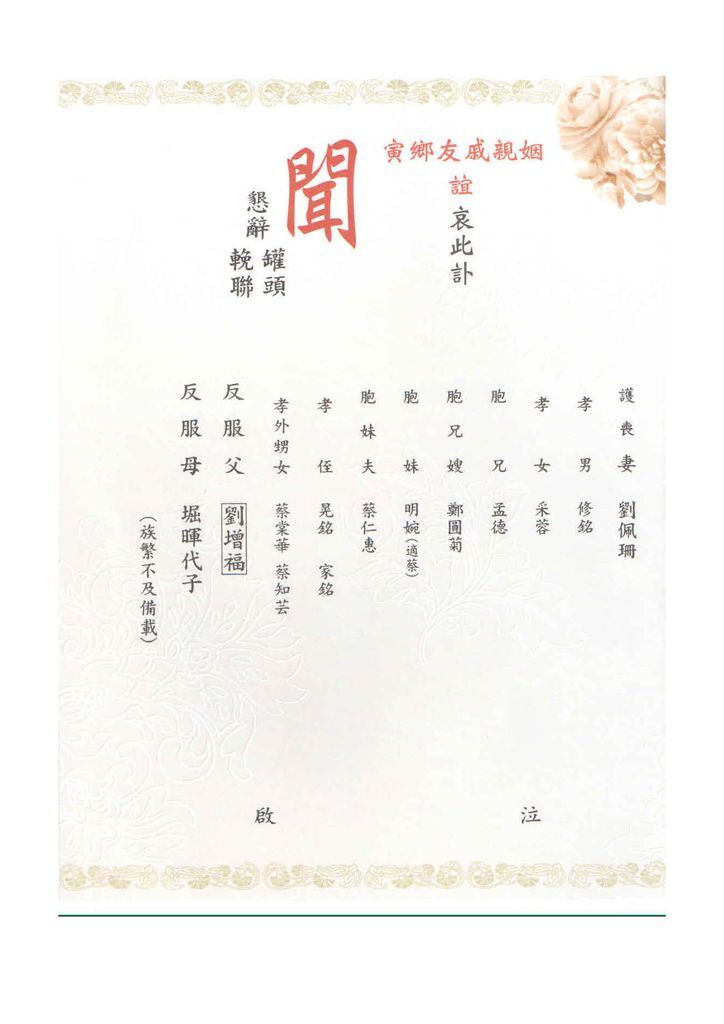 姻親戚友鄉寅
誼
哀此訃
聞
懇辭
罐頭
輓聯
護喪妻 劉佩珊
孝男 修銘
孝女 采蓉
胞兄 孟德
胞兄嫂 鄭圓菊
胞妹 明婉(適蔡)
胞妹夫 蔡仁惠
孝侄 晃銘 家銘
孝外甥女 蔡棠華 蔡知芸
反服父 劉增福
反服母 堀暉代子
(族繁不及備載)
泣
啟